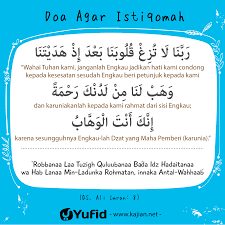 Doa Agar Istiqomah
رَبَّنَا لَا تُزِغْ قُلُوبَنَا بَعْدَ إِذْ هَدَيْتَنَا
"Wahai Tuhan kami, janganlah Engkau jadikan hati kami condong
kepada kesesatan sesudah Engkau beri petunjuk kepada kami
وَهَبْ لَنَا مِنْ لَدُنْكَ رَحْمَةً
dan karuniakanlah kepada kami rahmat dari sisi Engkau;
إِنَّكَ أَنْتَ الْوَهَّابُ
karena sesungguhnya Engkau-lah Dzat yang Maha Pemberi (karunia)."
"Robbanaa Laa Tuzigh Quluubanaa Ba'da Idz Hadaitanaa
wa Hab Lanaa Min-Ladunka Rohmatan, innaka Antal-Wahhaab"
(QS. Ali Imron: 8)
Yufid
- www.kajian.net -